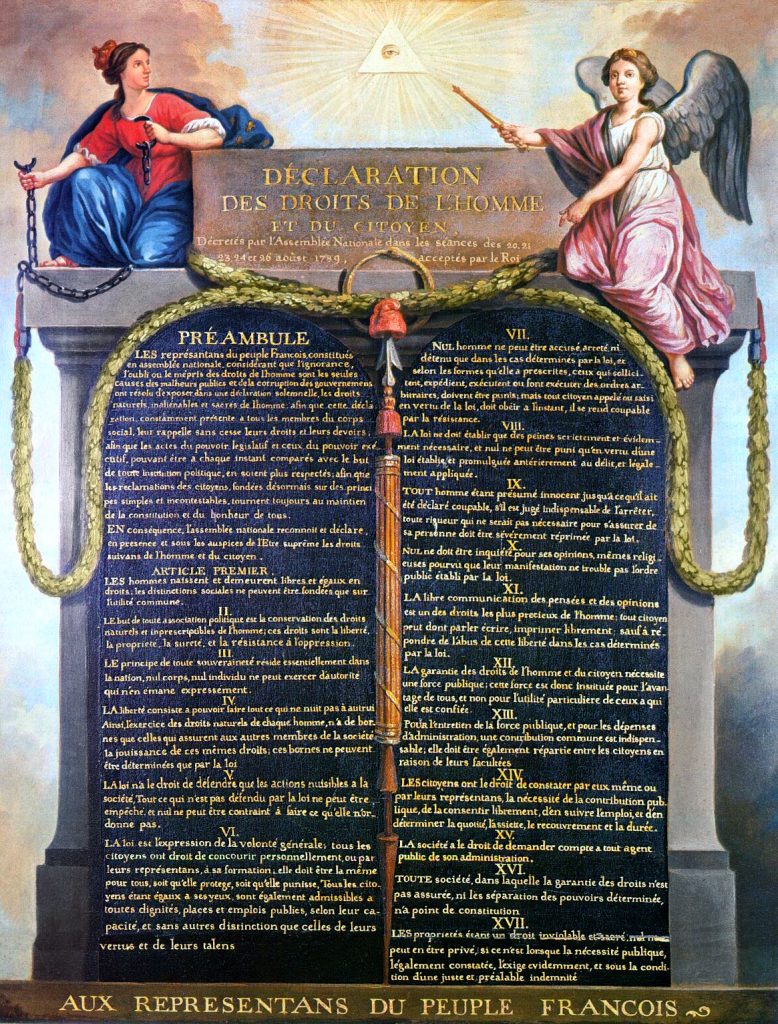 DÉCLARATION
DES DROITS DE L'HOMME
ET DU CITOYEN,
Décretés par l'Assemblée Nationale dans les séances des 20, 21
23, 24 et 26 août 1789, acceptés par le Roi
PRÉAMBULE
LES représantans du peuple Francois, constitués
en assemblée nationale, considérant que l'ignorance,
l'oubli ou le mépris des droits de l'homme sont les seules
causes des malheurs publics et de la corruption des gouvernemens
ont résolu d'exposer dans une déclaration solemnelle, les droits
naturels, inaliénables et sacrés de l'homme; afin que cette décla
ration, constamment présente a tous les membres du corps
social, leur rappelle sans cesse leurs droits et leurs devoirs,
afin que les actes du pouvoir législatif et ceux du pouvoir exé
cutif, pouvant être a chaque instant comparés avec le but
de toute institution politique, en soient plus respectés; afin que
les reclamations des citoyens, fondées désormais sur des princi
pes simples et incontestables, tournent toujours au maintien
de la constitution et du bonheur de tous.
EN conséquence, l'assemblée nationale reconnoit et déclare,
en presence et sous les auspices de l'Etre suprême les droits
suivans de l'homme et du citoyen.
ARTICLE PREMIER.
LES hommes naissent et demeurent libres et égaux en
droits; les distinctions sociales ne peuvent être fondées que sur
l'utilité commune.
II.
LE but de toute association politique est la conservation des droits
naturels et inprescriptibles de l'homme; ces droits sont la liberté,
la propriété, la sureté, et la résistance à l'oppression.
III.
LE principe de toute souveraineté réside essentiellement dans
la nation, nul corps, nul individu ne peut exercer d'autorité
qui n'en émane expressement.
IV.
LA liberté consiste a pouvoir faire tout ce qui ne nuit pas à autrui
Ainsi, l'exercice des droits naturels de chaque homme, n'a de bor
nes que celles qui assurent aux autres membres de la société
la jouissance de ces mêmes droits; ces bornes ne peuvent
être déterminées que par la loi
V.
LA loi n'a le droit de défendre que les actions nuisibles a la
société, Tout ce qui n'est pas défendu par la loi ne peut être
empêché, et nul ne peut être contraint à faire ce qu'elle n'or-
donne pas.
VI.
LA loi est l'expression de la volonté générale; tous les
citoyens ont droit de concourir personnellement, ou par
leurs représentans, à sa formation; elle doit être la même
pour tous, soit qu'elle protege, soit qu'elle punisse, Tous les cito
yens étant égaux a ses yeux, sont également admissibles a
toutes dignités, places et emplois publics, selon leur ca-
pacité, et sans autres distinction que celles de leurs
vertus et de leurs talens
VII.
NUL homme ne peut être accusé, arreté, ni
détenu que dans les cas déterminés par la loi, et
selon les formes qu'elle a prescrites, ceux qui sollici-
tent, expédient, exécutent ou font exécuter des ordres ar-
bitraires, doivent être punis; mais tout citoyen appelé ou saisi
en vertu de la loi, doit obéir a l'instant, il se rend coupable
par la résistance.
VIII.
LA loi ne doit établir que des peines strictement et évidem-
ment nécessaire, et nul ne peut être puni qu'en vertu d'une
loi établie, et promulguée antérierement au délit, et légale-
ment appliquée.
IX.
TOUT homme étant présumé innocent jusqu'a ce qu'il ait
été déclaré coupable, s'il est jugé indispensable de l'arrêter,
toute rigueur qui ne serait pas nécessaire pour s'assurer de
sa personne doit être sévèrement réprimée par la loi.
X.
NUL ne doit être inquiété pour ses opinions, mêmes religi-
euses pourvu que leur manifestation ne trouble pas l'ordre
public établi par la loi.
XI.
LA libre communication des pensées et des opinions
est un des droits les plus precieux de l'homme; tout citoyen
peut dont parler écrire, imprimer librement; sauf à ré-
pondre de l'abus de cette liberté dans les cas déterminés
par la loi.
XII.
LA garantie des droits de l'homme et du citoyen nécessite
une force publique; cette force est donc instituée pour l'avan-
tage de tous, et non pour l'utilité particulière de ceux a qui
elle est confiée.
XIII.
POUR l'entretien de la force publique, et pour les dépenses
d'administration, une contribution commune est indispen-
sable; elle doit être également répartie entre les citoyens en
raison de leurs facultées
XIV.
LES citoyens ont le droit de constater par eux même ou
par leurs représentans, la nécessité de la contribution pub-
lique, de la consentir librement, d'en suivre l'emploi, et d'en
déterminer la quotité, l'assiete, le recouvrement et la durée.
XV.
LA société a le droit de demander compte a tout agent
public de son administration.
XVI.
TOUTE société, dans laquelle la garantie des droits n'est
pas assurée, ni les séparation des pouvoirs déterminée,
n'a point de constitution
XVII.
LES proprietés étant un droit inviolable et sacré, nul ne
peut en être privé, si ce n'est lorsque la nécessité publique,
légalement constatée, l'exige evidemment, et sous la condi
tion d'une juste et préalable indemnité
AUX REPRESENTANS DU PEUPLE FRANCOIS